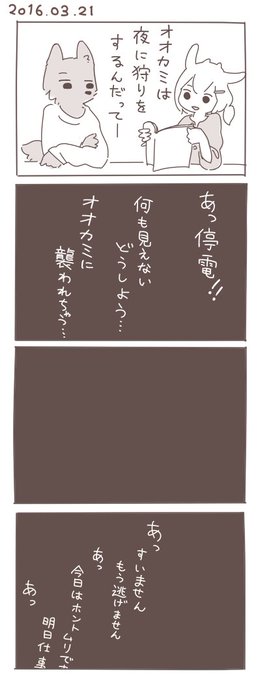 2016.03.21
オオカミは
夜に狩りを
するんだってー
あっ停電!!
何も見えない
どうしよう…
オオカミに
襲われちゃう…
あっ
すいません
もう逃げません
あっ
今日はホントムリです
あっ
明日仕事